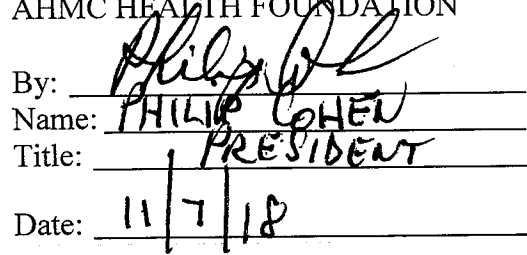 AHMC HEALTH FOUNDATION
By: Philip
Name: PHILIP COHEN
Title: PRESIDENT
Date: 11/7/18